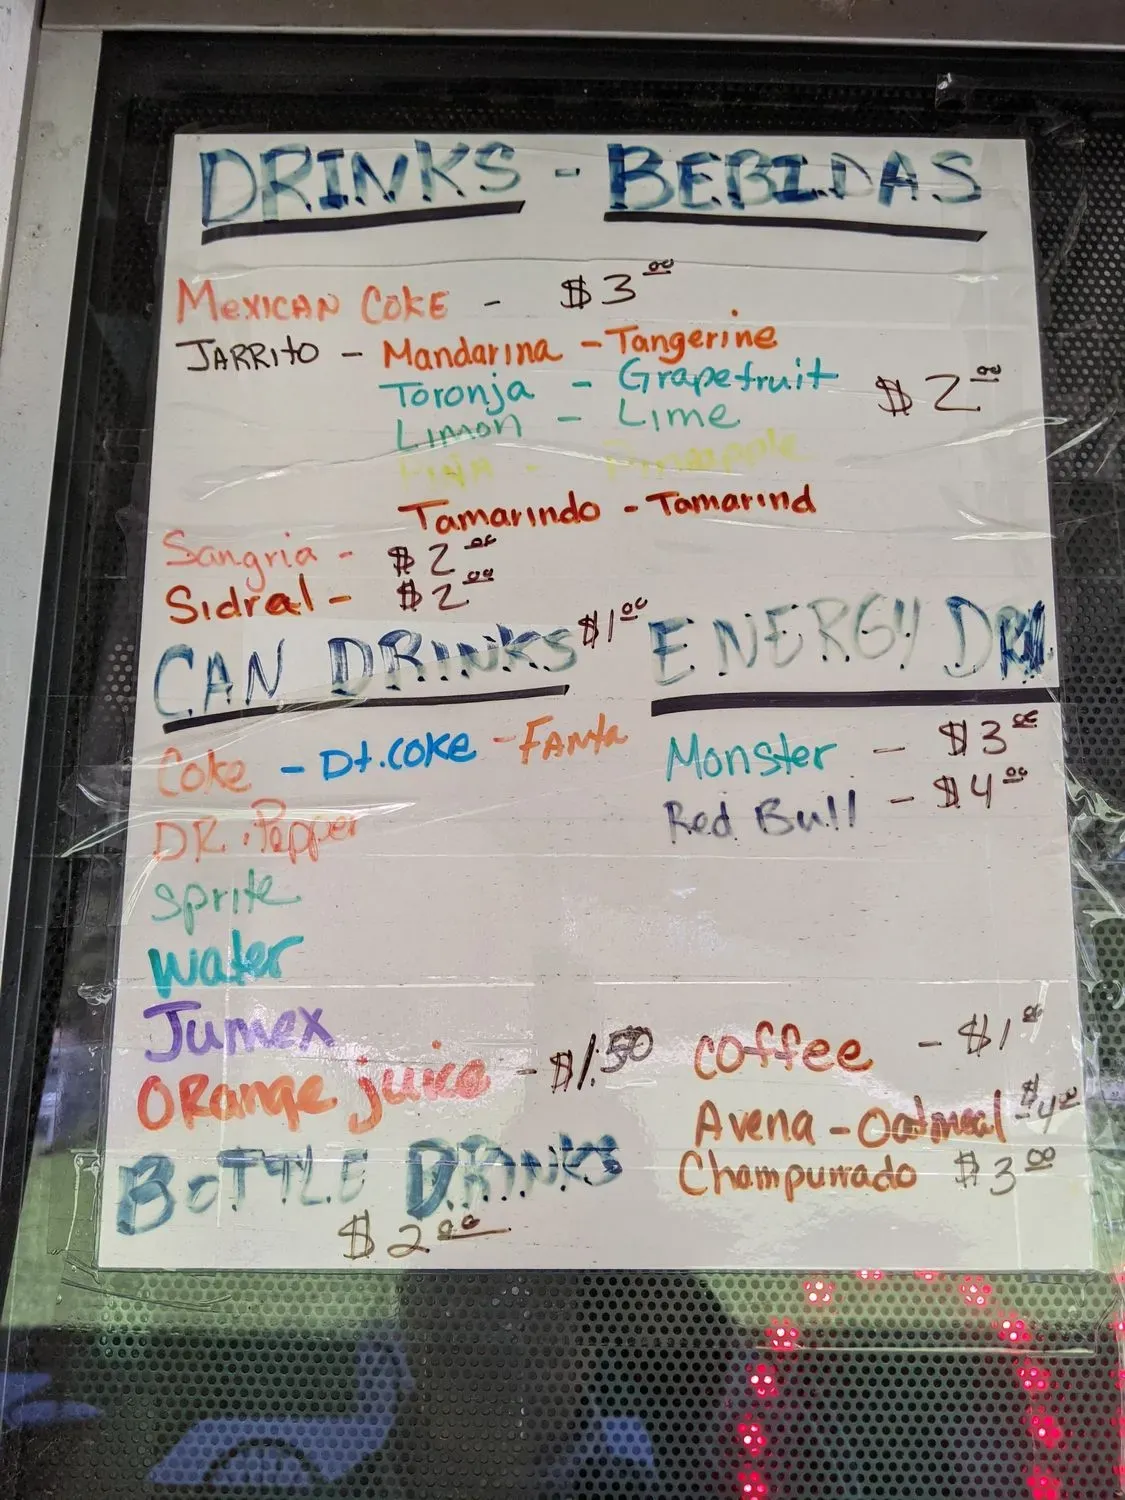 DRINKS - BEBIDAS
MEXICAN COKE - $3.00
JARRITO - Mandarina - Tangerine
Toronja - Grapefruit $2.00
Limon - Lime
PIÑA - Pineapple
Tamarindo - Tamarind
Sangria - $2.00
Sidral - $2.00
CAN DRINKS $1.00
Coke - Dt. COKE - FANta
DR. Pepper
Sprite
Water
Jumex
ORange juice - $1.50
BOTTLE DRINKS
$2.00
ENERGY DR
Monster - $3.00
Red Bull - $4.00
Coffee - $1.00
Avena - Oatmeal $4.00
Champurrado $3.00